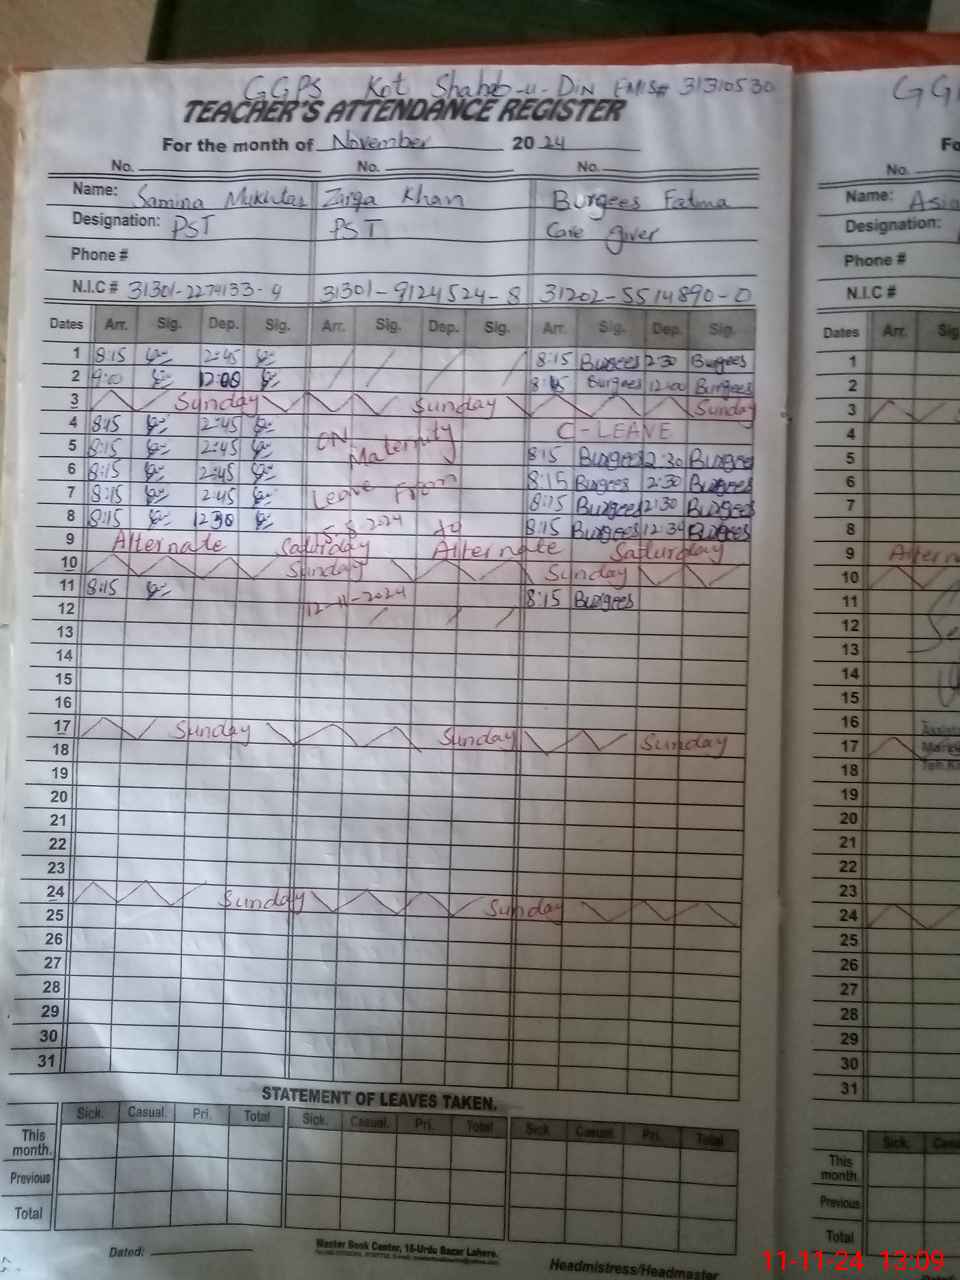 GGPS Kot Shahab-u-Din EMIS# 31310530
TEACHER'S ATTENDANCE REGISTER
For the month of November 2024
No. No. No.
Name: Samina Mukhtar Zirga Khan Burgees Fatma
Designation: PST PST Care giver
Phone #
N.I.C # 31301-2274133-9 31301-9124524-8 31202-5514890-0
Dates Arr. Sig. Dep. Sig. Arr. Sig. Dep. Sig. Arr. Sig. Dep. Sig.
1 8:15 2:45 8:15 Burgees 2:30 Burgees
2 9:00 12:00 8:15 Burgees 12:00 Burgees
3 Sunday Sunday Sunday
4 8:15 2:45 ON Maternity C-LEAVE
5 8:15 2:45 8:15 Burgees 2:30 Burgees
6 8:15 2:45 Leave From 8:15 Burgees 2:30 Burgees
7 8:15 2:45 8:15 Burgees 2:30 Burgees
8 8:15 12:30 5-8-2024 to 8:15 Burgees 12:30 Burgees
9 Alternate Saturday Alternate Saturday
10 Sunday Sunday
11 8:15 12-11-2024 8:15 Burgees
12
13
14
15
16
17 Sunday Sunday Sunday
18
19
20
21
22
23
24 Sunday Sunday
25
26
27
28
29
30
31
STATEMENT OF LEAVES TAKEN.
Sick. Casual. Pri. Total Sick. Casual. Pri. Total Sick Casual. Pri. Total
This month.
Previous
Total
Dated:
Master Book Center, 16-Urdu Bazar Lahore.
Headmistress/Headmaster
No.
Name:
Designation:
Phone #
N.I.C #
Dates Arr.
1
2
3
4
5
6
7
8
9
10
11
12
13
14
15
16
17
18
19
20
21
22
23
24
25
26
27
28
29
30
31
Sick.
This month
Previous
Total
11-11-24 13:09